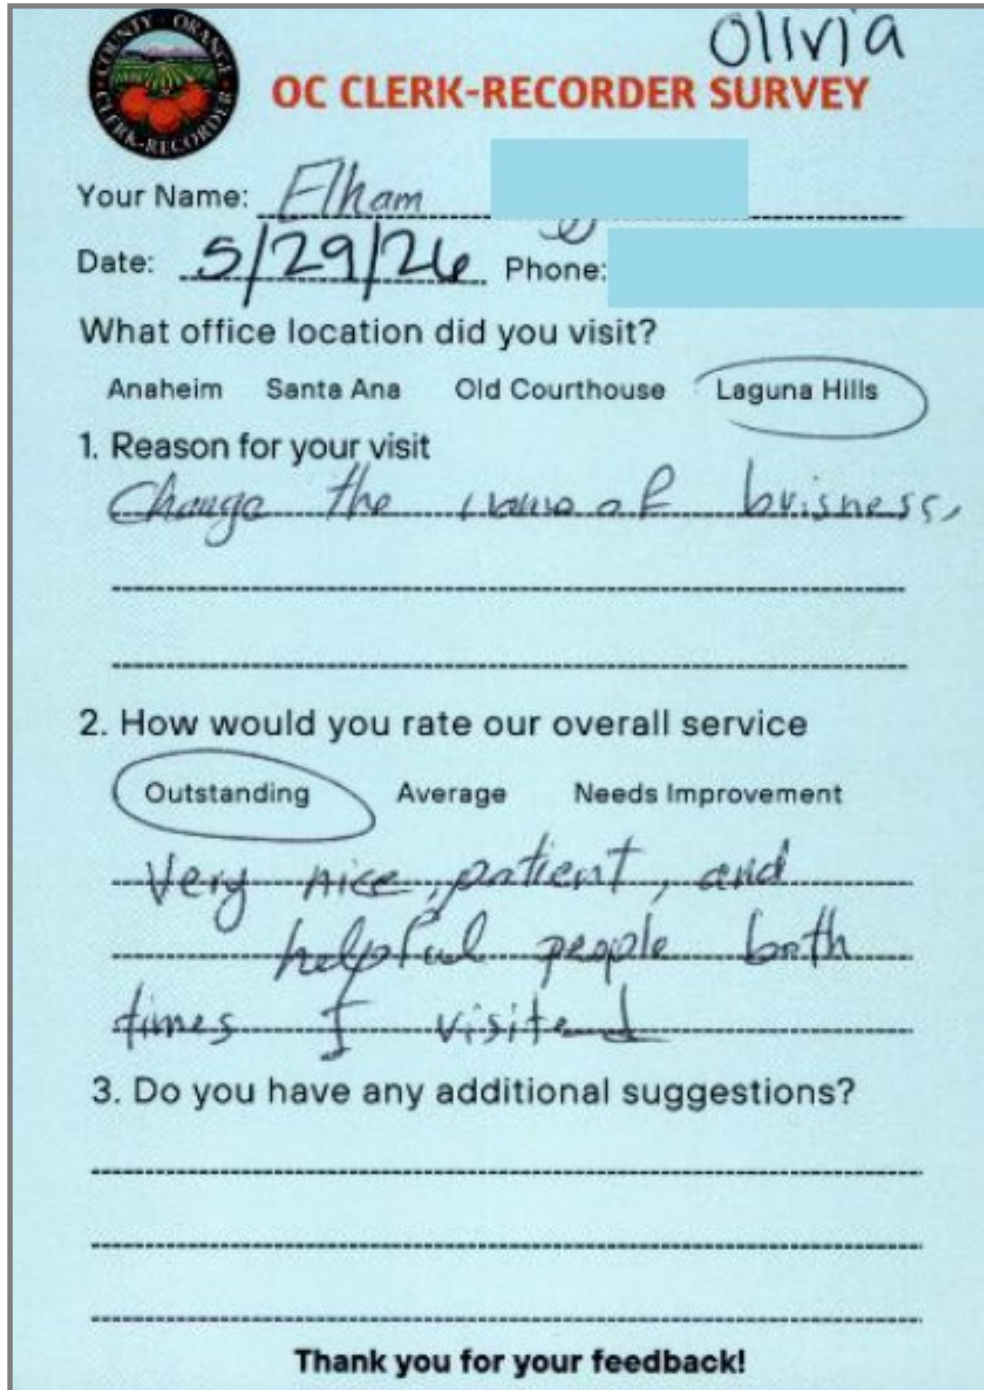 Olivia
COUNTY · ORANGE
CLERK-RECORDER
OC CLERK-RECORDER SURVEY
Your Name: Elham
Date: 5/29/26 Phone:
What office location did you visit?
Anaheim Santa Ana Old Courthouse Laguna Hills
1. Reason for your visit
Change the name of brisness,
2. How would you rate our overall service
Outstanding Average Needs Improvement
Very nice, patient, and
helpful people both
times I visited
3. Do you have any additional suggestions?
Thank you for your feedback!